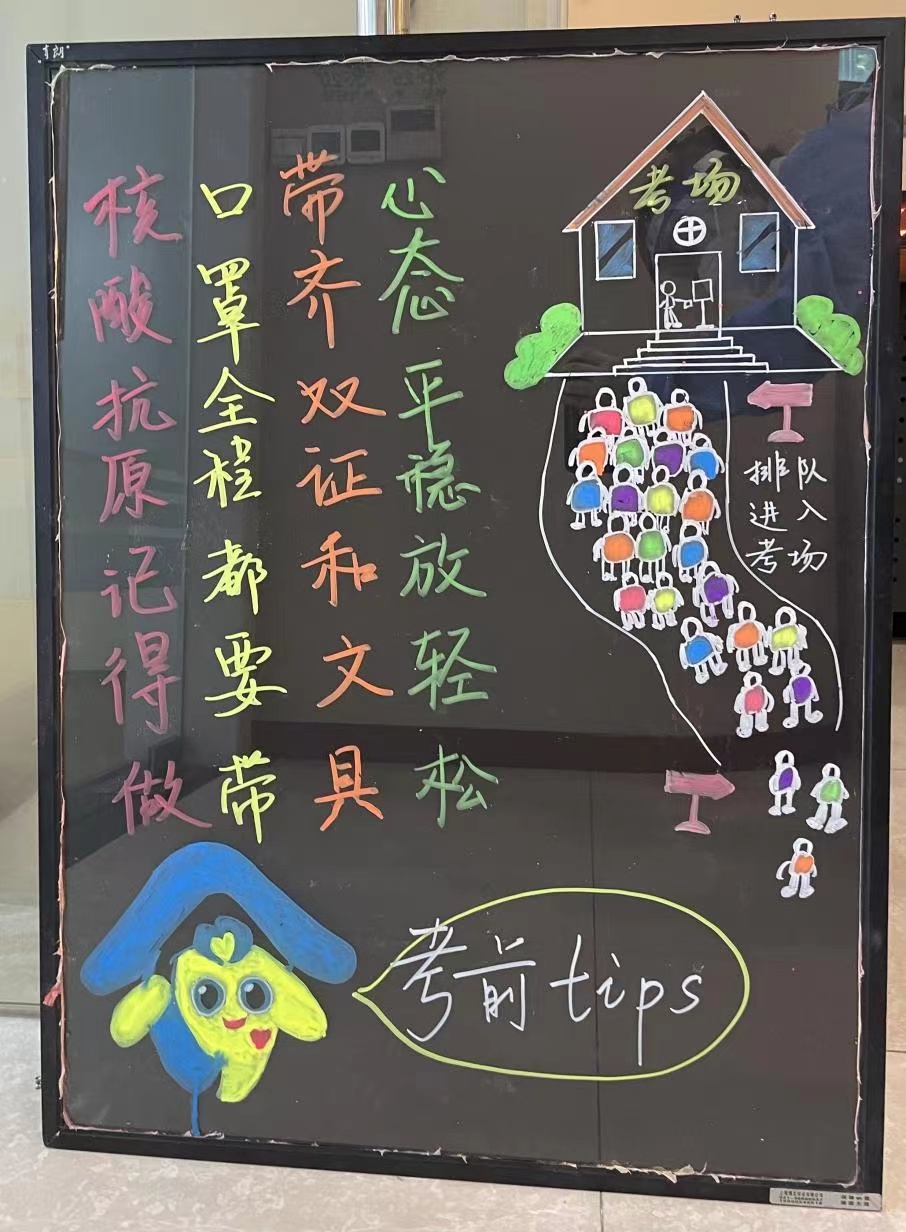 核酸抗原记得做
口罩全程都要带
带齐双证和文具
心态平稳放轻松
考场
排队
进入
考场
考前tips